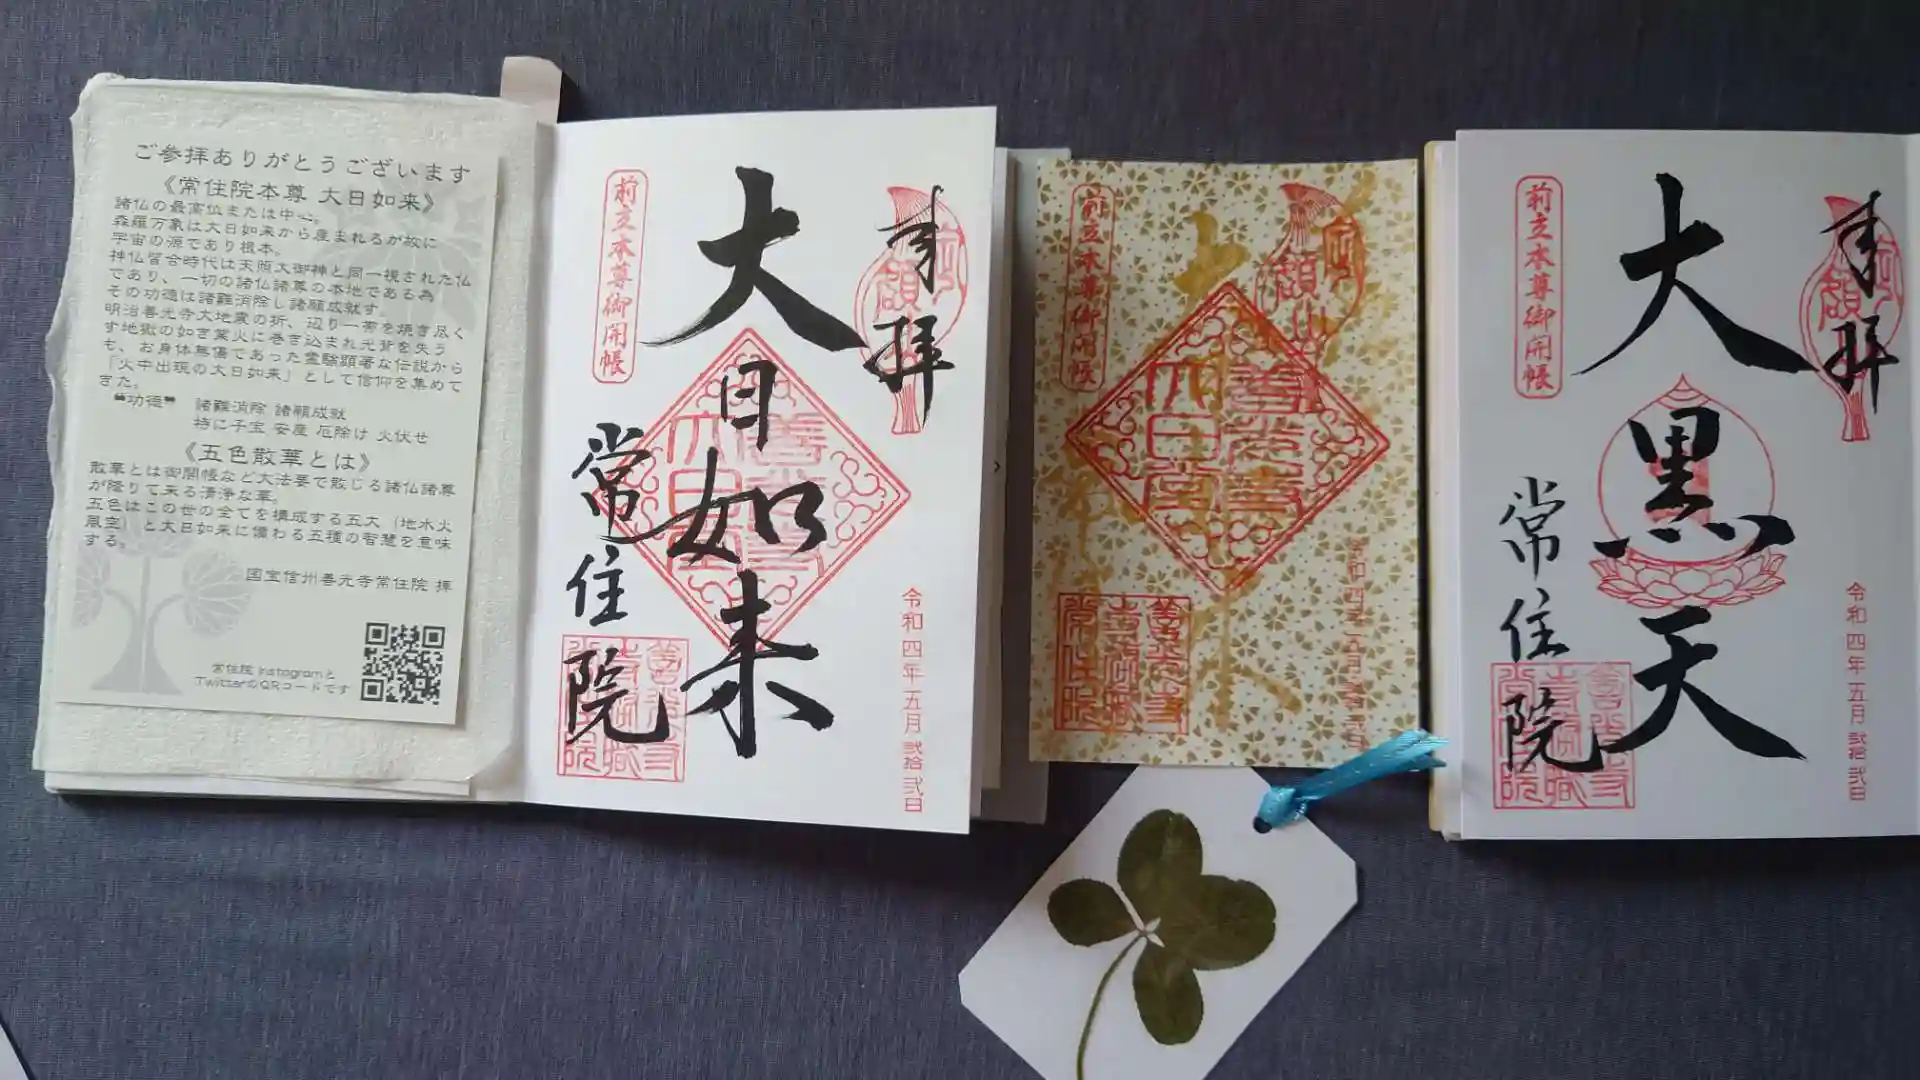 ご参拝ありがとうございます
《常住院本尊 大日如来》
諸仏の最高位または中心。
森羅万象は大日如来から産まれるが故に
宇宙の源であり根本。
神仏習合時代は天照大御神と同一視された仏
であり、一切の諸仏諸尊の本地である為
その功徳は諸難消除し諸願成就す。
明治善光寺大地震の折、辺り一帯を焼き尽く
す地獄の如き業火に巻き込まれ光背を失う
も、お身体無傷であった霊験顕著な伝説から
「火中出現の大日如来」として信仰を集めて
きた。
❝功徳❞ 諸難消除 諸願成就
特に子宝 安産 厄除け 火伏せ
《五色散華とは》
散華とは御開帳など大法要で散じる諸仏諸尊
が降りて来る清浄な華。
五色はこの世の全てを構成する五大(地水火
風空)と大日如来に備わる五種の智慧を意味
する。
国宝信州善光寺常住院 拝
常住院 Instagramと
TwitterのQRコードです
奉拝
令和四年五月弐拾弐日
大日如来
前立本尊御開帳
常住院
前立本尊御開帳
善光寺
大日堂
奉拝
令和四年五月弐拾弐日
大黒天
前立本尊御開帳
常住院